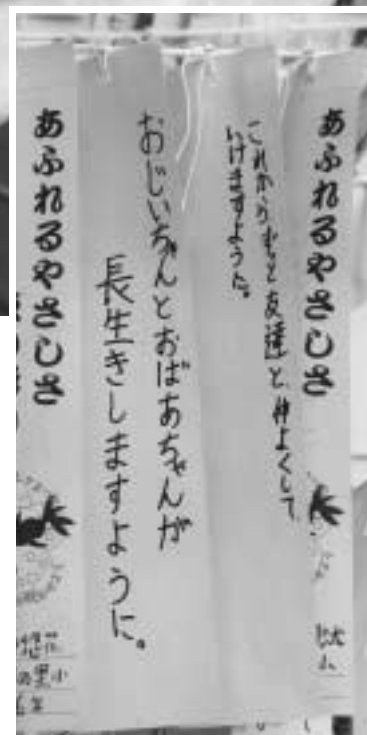 あふれるやさしさ
これからもずっと友達と仲よくして
いけますように。
おじいちゃんとおばあちゃんが
長生きしますように。
あふれるやさしさ